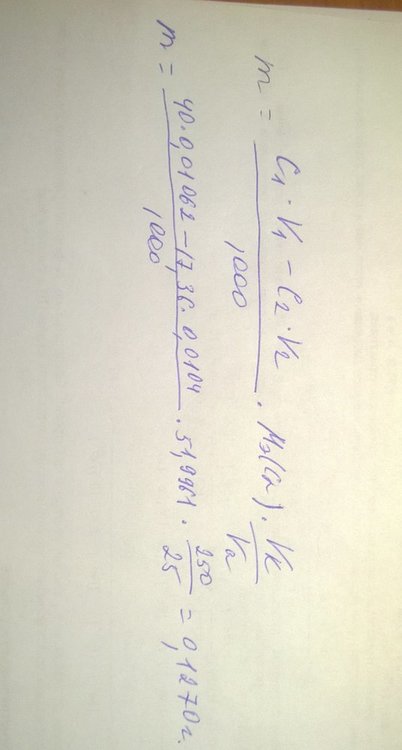 m = (C₁·V₁ − C₂·V₂)/1000 · Mэ(Cr) · Vк/Va
m = (40·0,01062 − 17,36·0,0104)/1000 · 51,9961 · 250/25 = 0,1270г.